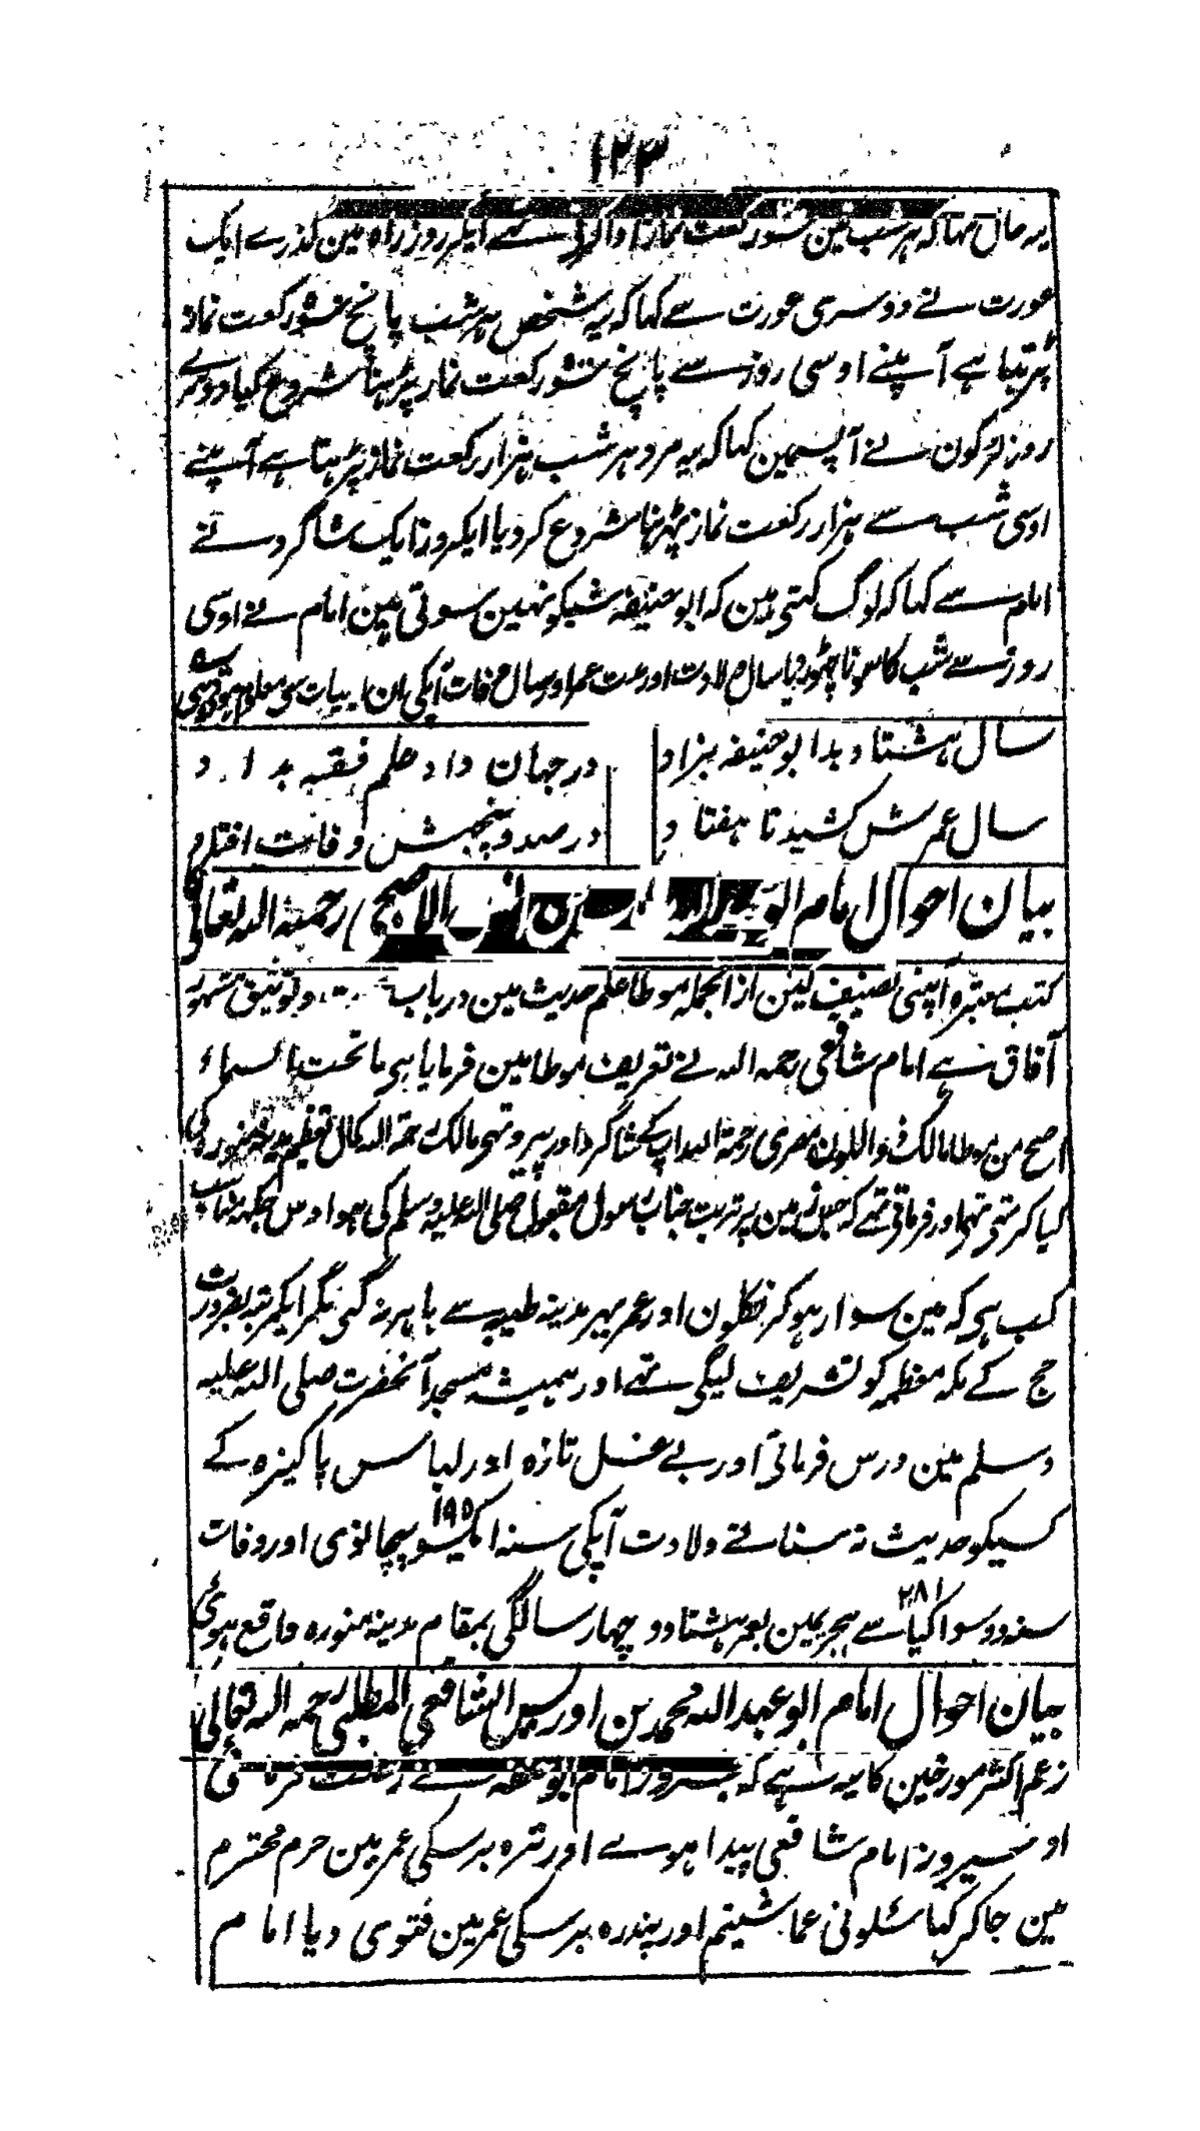 ۱۲۳
یہ حال تہا کہ ہر شب مین رکعت نماز ادا ایکروز راہ مین گذرے ایک
عورت نے دوسری عورت سے کہا کہ یہ شخص ہر شب پانچ سٹور کعت نماز
پڑہتا ہے آپنے اوسی روز سے پانچ سٹور کعت نماز پڑہنا شروع کیا دوسرے
روز لڑکون نے آپسمین کہا کہ یہ مرد ہر شب ہزار رکعت نماز پڑہتا ہے آپنے
اوسی شب سے ہزار رکعت نماز پڑہنا شروع کردیا ایکروز ایک شاگرد نے
امام سے کہا کہ لوگ کہتی ہین کہ ابو حنیفہ شبکو نہین سوتی ہین امام نے اوسی
روز سے شب کا سونا چھوڑ دیا سال ولادت اور مدت عمر اور سال وفات آپکی ان ابیات سی معلوم
سال ہشتاد بد ابو حنیفہ بزاد درجہان داد علم فقہ بداد
سال عمرش کشید تا ہفتاد در صد و پنجہش وفات افتاد
بیان احوال امام انس الاصبحی رحمۃ اللہ تعالی
کتب معتبرہ اپنی تصنیف کین از انجملہ موطا علم حدیث مین درباب وتوثیق مشہور
آفاق ہے امام شافعی رحمہ اللہ نے تعریف موطا مین فرمایا ہی ما تحت السماء
اصح من موطا مالک ذو اللون مصری رحمۃ اللہ آپکے شاگرد اور پیرو تہی مالک رحمۃ اللہ کمال تعظیم مدینہ منورہ کی
کیا کرتی تہی اور فرماتی تہے کہ جس زمین پر تربت جناب رسول مقبول صلی اللہ علیہ وسلم کی ہو اوس جگہہ مناسب
کب ہی کہ مین سوار ہو کر نکلون اور عمر بہر مدینہ طیبہ سے باہر نہ گئی مگر ایکمرتبہ بضرورت
حج کے مکہ معظمہ کو تشریف لیگی تہے اور ہمیشہ مسجد آنحضرت صلی اللہ علیہ
وسلم مین درس فرماتی اور بے غسل تازہ اور لباس پاکیزہ کے
کسیکو حدیث نہ سناتے ولادت آپکی سنہ ایکسو پچانوی ۱۹۵ اور وفات
سنہ دو سو اکیاسے ۲۸۱ ہجریمین بعمر ہشتاد و چہار سالگی بمقام مدینہ منورہ واقع ہوئی
بیان احوال امام ابو عبد اللہ محمد بن ادریس الشافعی المطلبی رحمہ اللہ تعالی
زعم اکثر مورخین کا یہ ہے کہ جسروز امام ابو حنیفہ نے رحلت فرمائی
اوسیروز امام شافعی پیدا ہوے اور تیرہ برسکی عمر مین حرم محترم
مین جا کر کہا سئلونی عما شئیتم اور پندرہ برسکی عمر مین فتوی دیا امام